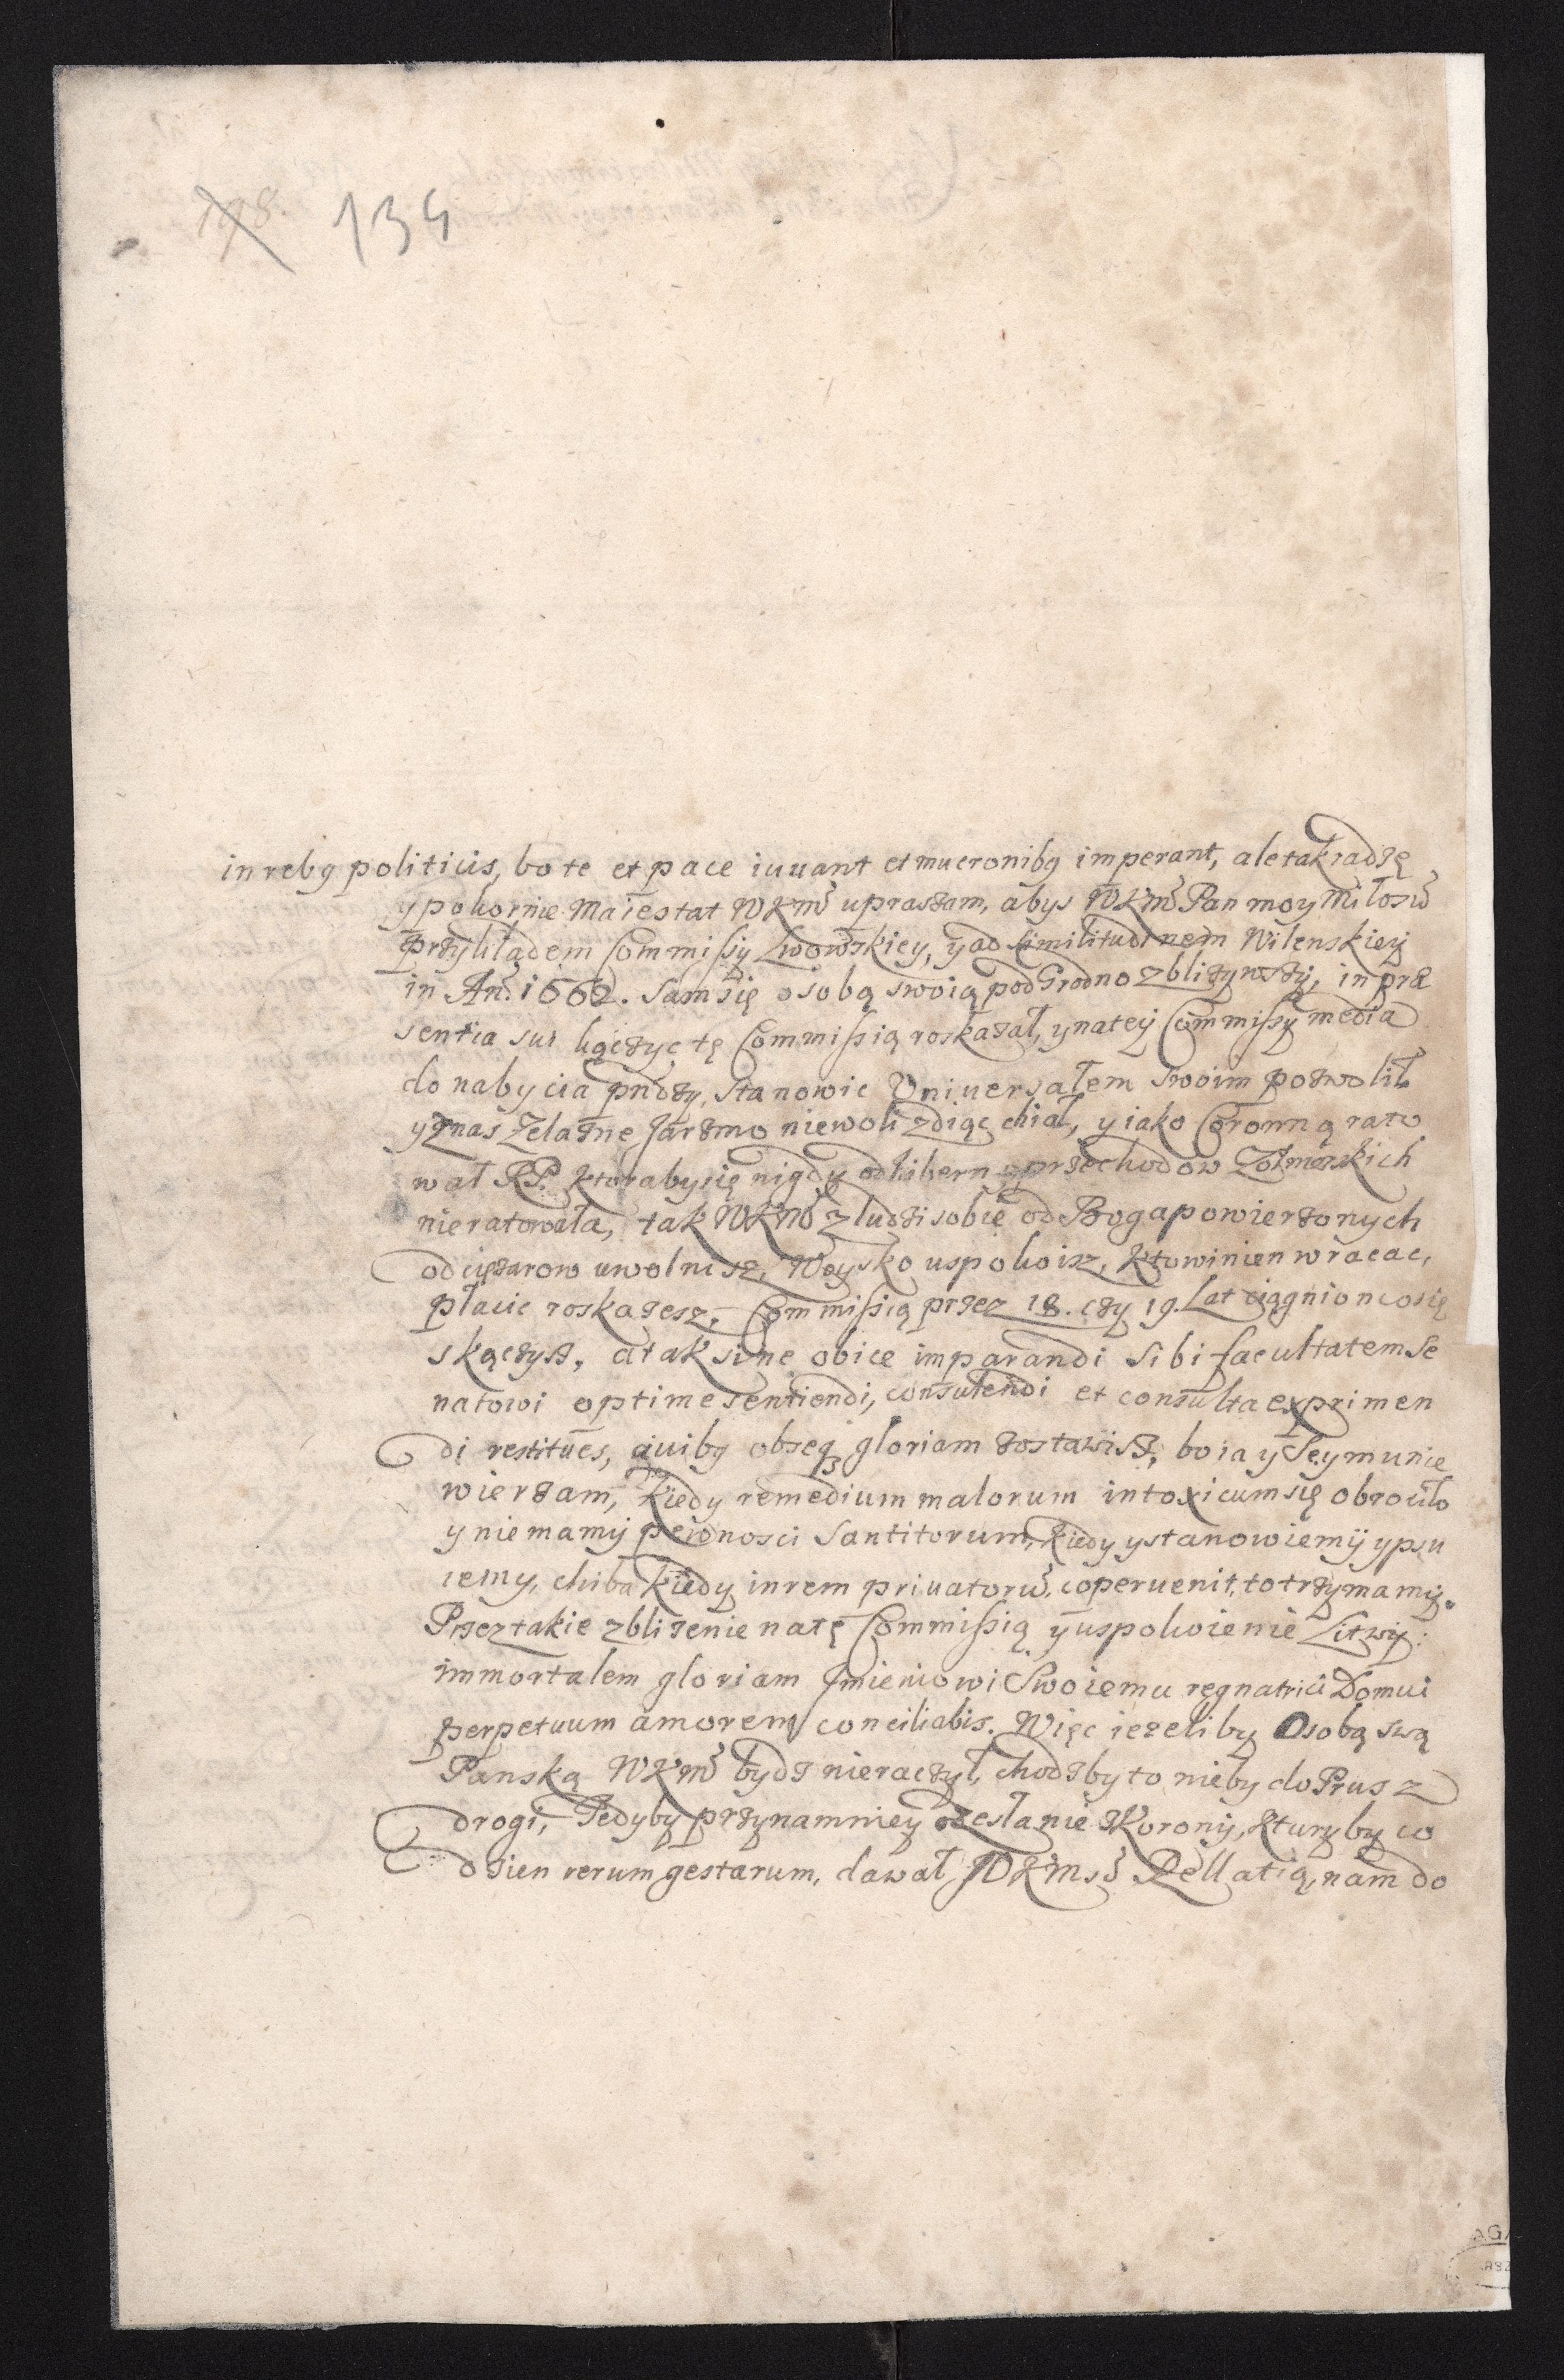 198. 134
in rebq politicis, bo te et pace iuuant et mucronibq imperant, ale tak radzę
y pokornie Maiestat WKM upraszam, abys WKM Pan moy Miłosć
przykładem Commissy Lwowskiey, y ad similitudinem Wilenskiey
in An. 1662. Sam się osobą swoią pod Grodno zbliżywszy, in præ
sentia sui kączyc tę Commissią roskazał, y na tey Commissy media
do nabycia pndzy, stanowic Uniuersałem swoim pozwolił
y z nas Zelazne Jarzmo niewoli zdiąc chiał, y iako Coronną rato
wał RP. ktoraby się nigdy od hibern y przechodow Zołnierskich
nie ratowała, tak WKM z ludzi sobie od Boga powierzonych
od ciężarow uwolnisz, Woysko uspokoisz, kto winien wracac,
płacic roskażesz, Commissią przez 18. czy 19. Lat ciągnioncosię
skączysz, a tak sine obice imparandi sibi facultatem Se
natowi optime sentiendi, consulendi et consulta exprimen
di restitues, ciuibq obseq gloriam zostawisz, bo ia y Seymu nie
wierzam, kiedy remedium malorum in toxicum się obrociło
y nie mamy pewnosci Santitorum, kiedy y stanowiemy y psu
iemy, chiba kiedy in rem priuatoru, co peruenit, to trzymamy.
Przez takie zbliżenie na tę Commissią y uspokoienie Litwy:
immortalem gloriam Jmieniowi Swoiemu regnatrici Domui
perpetuum amorem conciliabis. Więc ieżeliby Osobą swą
Panską WKM bydz nieraczył, chodzby to nieby do Prus z
drogi, Tedyby przynamniey zesłanie z Korony, kturyby co
dzien rerum gestarum, dawał WKMsć Rellatią, nam do